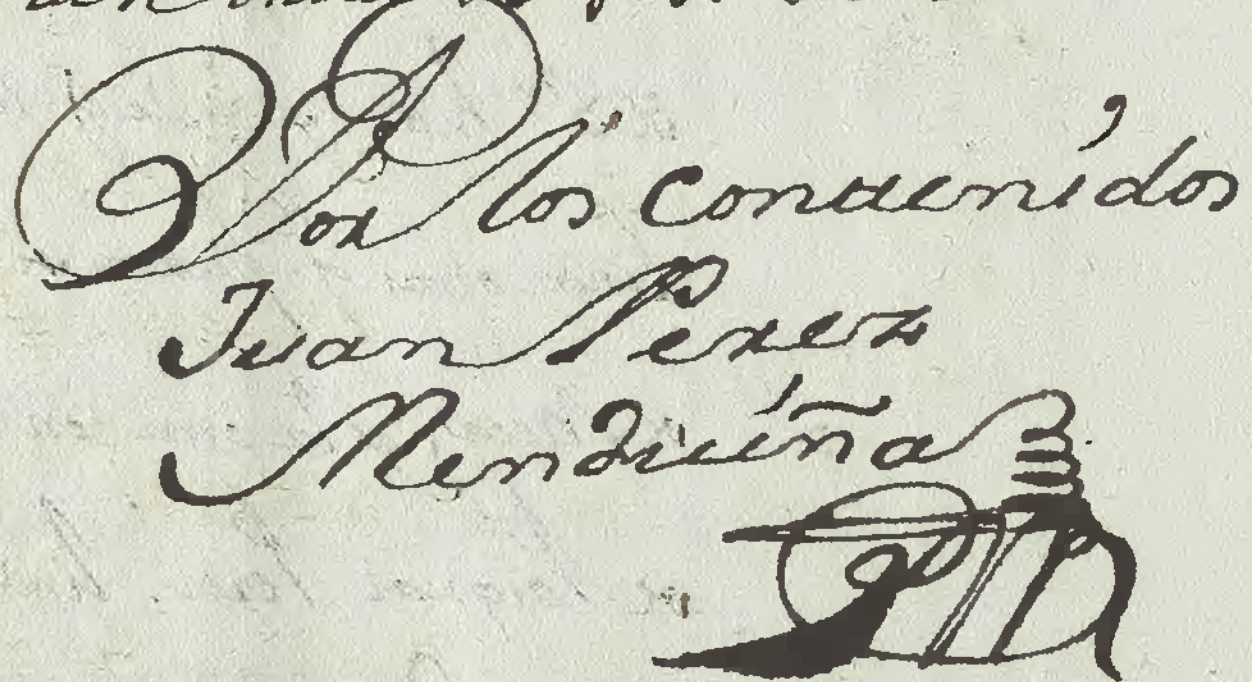 Por los contenidos
Juan Perez
Mendicuiña